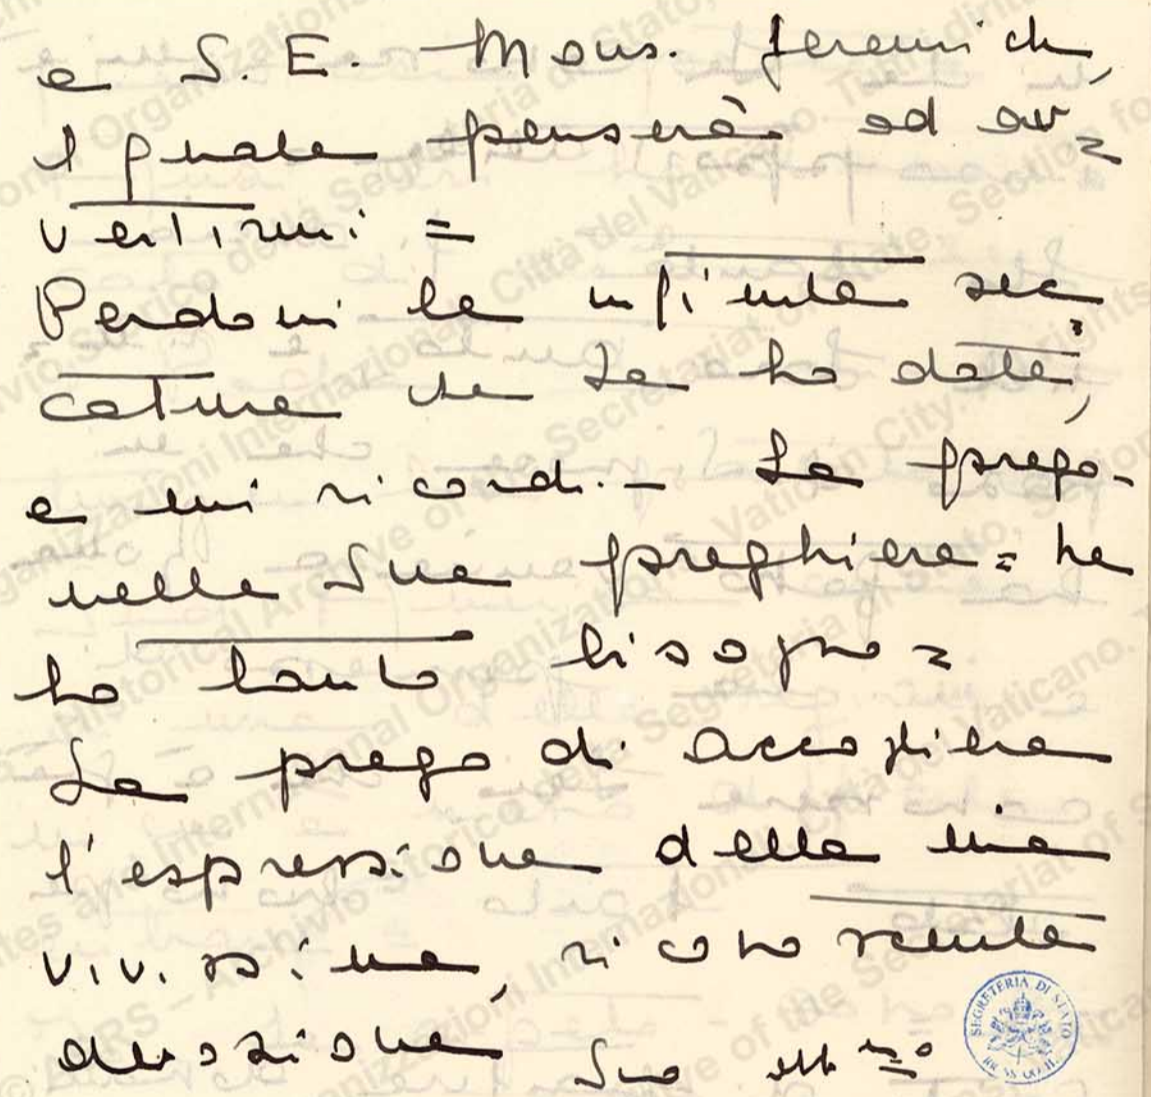 a S. E. Mons. Jeremich,
il quale penserà ad av=
vertirmi =
Perdoni le infinite sec=
cature che Le ho date,
e mi ricordi. - La prego -
nelle Sue preghiere = ne
ho tanto bisogno =
La prego di accogliere
l'espressione della mia
vivissima, riconoscente
devozione
Suo obb.mo
SEGRETERIA DI STATO